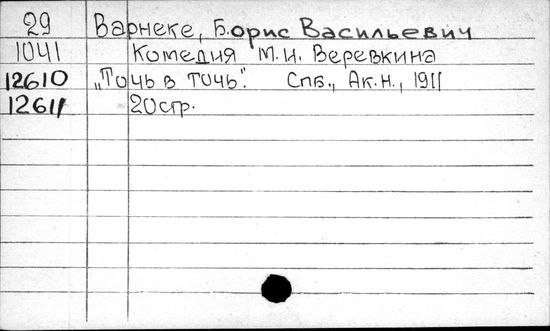 29 Варнеке, Борис Васильевич
1041 Комедия М.И. Веревкина
12610 „Точь в точь". Спв., Ак.н., 1911
12611 20стр.